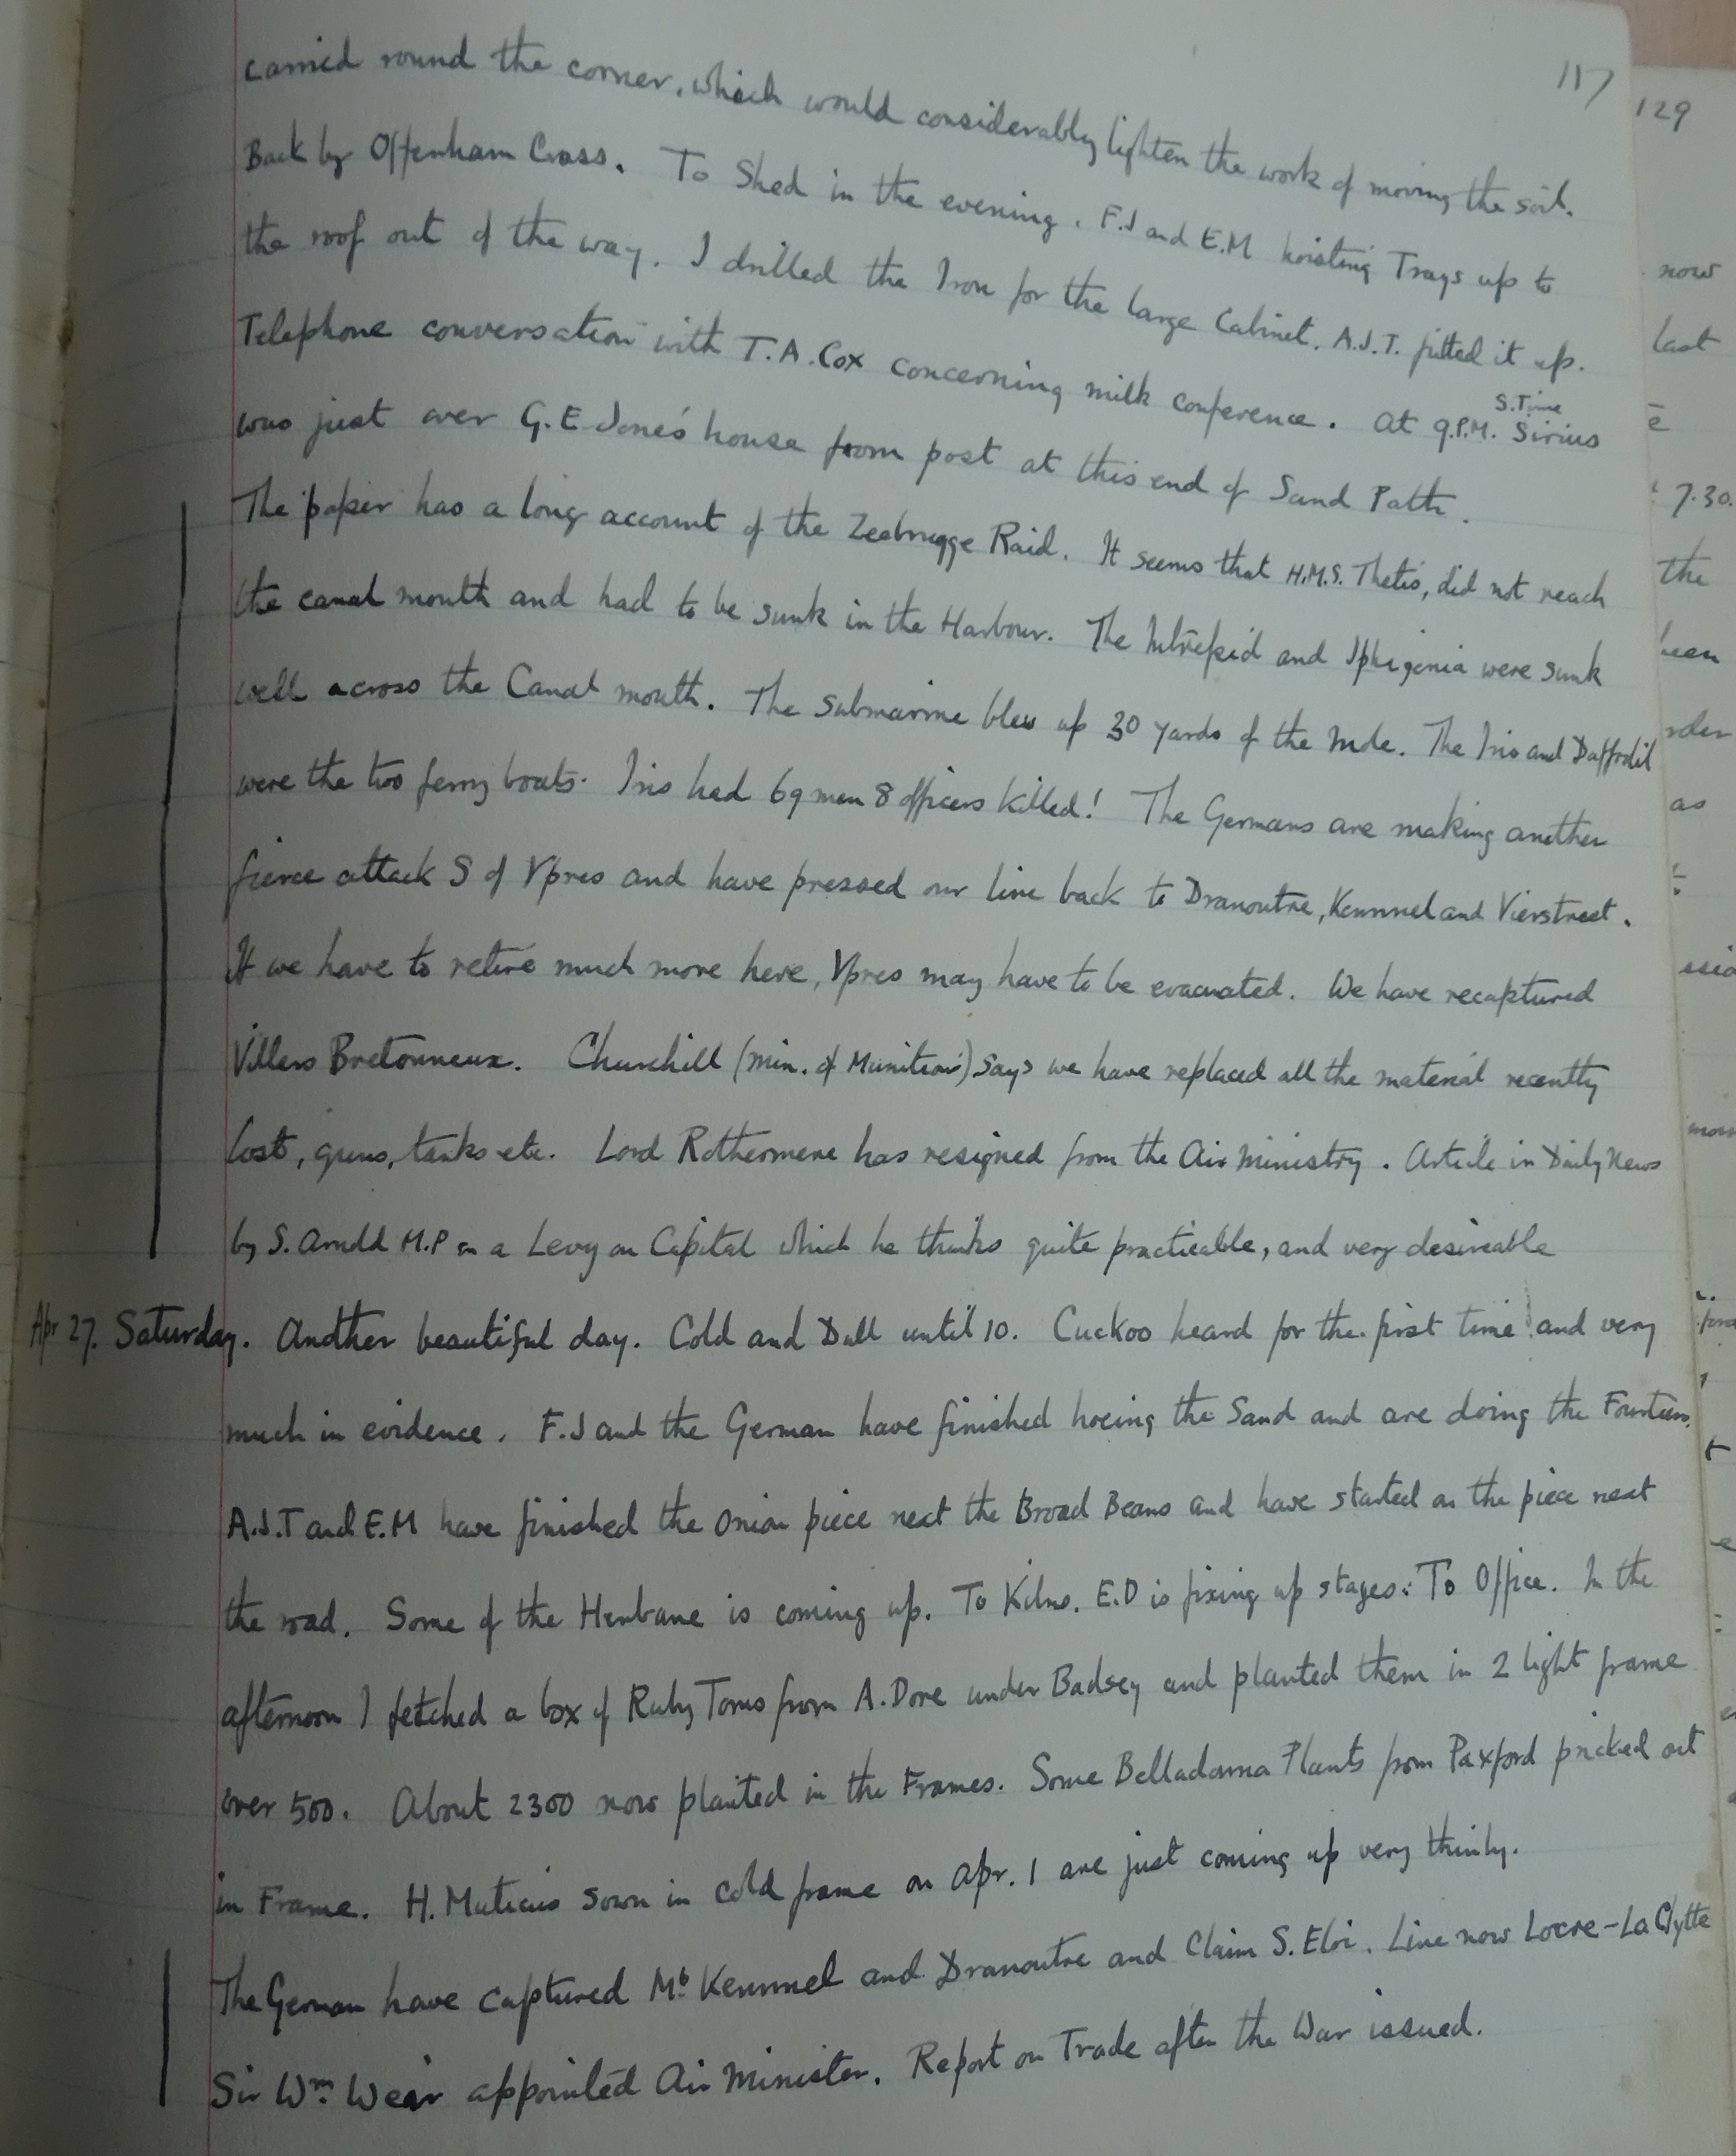 117
carried round the corner, which would considerably lighten the work of moving the soil.
Back by Offenham Cross. To Shed in the evening. F.J and E.M hoisting Trays up to
the roof out of the way. I drilled the Iron for the large Cabinet. A.J.T. fitted it up.
Telephone conversation with T.A. Cox concerning milk conference. At 9.P.M. S.Time Sirius
was just over G.E. Jones' house from post at this end of Sand Path.
The paper has a long account of the Zeebrugge Raid. It seems that H.M.S. Thetis, did not reach
the canal mouth and had to be sunk in the Harbour. The Intrepid and Iphigenia were sunk
well across the Canal mouth. The submarine blew up 30 yards of the Mole. The Iris and Daffodil
were the two ferry boats. Iris had 69 men 8 officers killed! The Germans are making another
fierce attack S of Ypres and have pressed our line back to Dranoutre, Kemmel and Vierstreet.
If we have to retire much more here, Ypres may have to be evacuated. We have recaptured
Villers Bretonneux. Churchill (Min. of Munitions) says we have replaced all the material recently
lost, guns, tanks etc. Lord Rothermere has resigned from the Air Ministry. Article in Daily News
by S. Arnold M.P on a Levy on Capital which he thinks quite practicable, and very desireable
Apr 27. Saturday. Another beautiful day. Cold and Dull until 10. Cuckoo heard for the first time and very
much in evidence. F.J and the German have finished hoeing the Sand and are doing the Fourteen.
A.J.T and E.M have finished the Onion piece next the Broad Beans and have started on the piece next
the road. Some of the Henbane is coming up. To Kilns. E.D is fixing up stages. To Office. In the
afternoon I fetched a box of Ruby Toms from A. Dore under Badsey and planted them in 2 light frame
over 500. About 2300 now planted in the Frames. Some Belladonna Plants from Paxford pricked out
in Frame. H. Muticus sown in cold frame on Apr. 1 are just coming up very thinly.
The German have captured Mt Kemmel and Dranoutre and Claim S. Eloi. Line now Locre - La Clytte
Sir Wm Weir appointed Air Minister. Report on Trade after the War issued.
129
now
last
7.30.
the
as